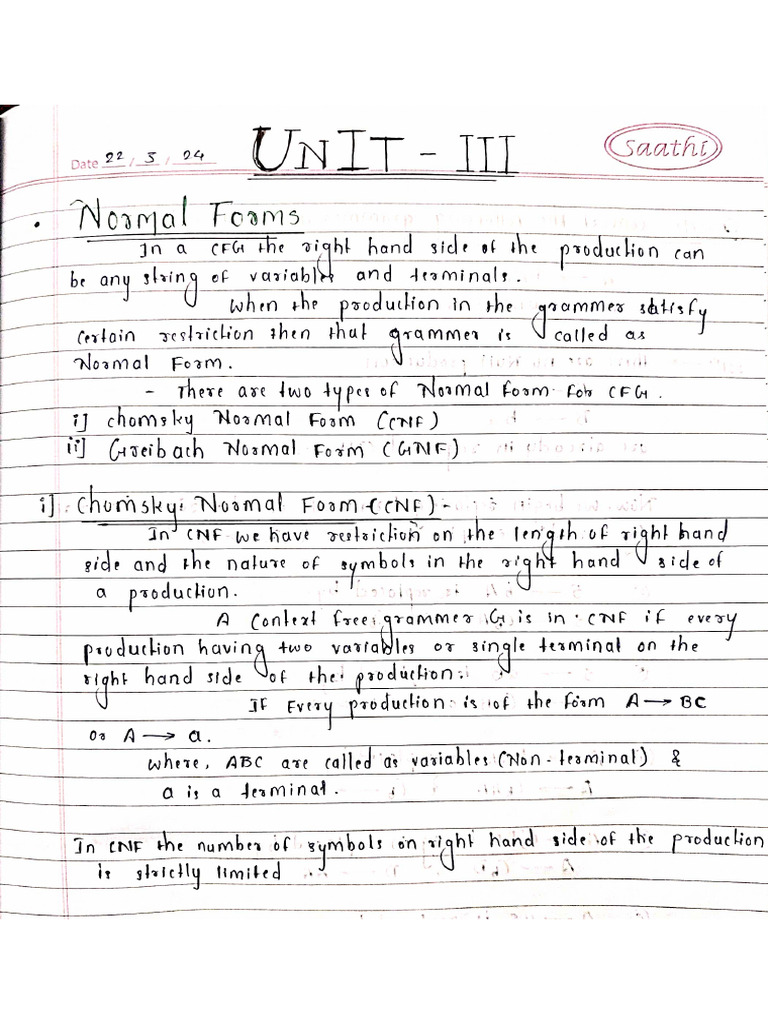 Date 22 / 3 / 24
UNIT - III
Saathi
• Normal Forms
In a CFG the right hand side of the production can
be any string of variables and terminals.
When the production in the grammer satisfy
certain restriction then that grammer is called as
Normal Form.
- There are two types of Normal Form for CFG.
i] Chomsky Normal Form (CNF)
ii] Greibach Normal Form (GNF)
i] Chomsky Normal Form (CNF) -
In CNF we have restriction on the length of right hand
side and the nature of symbols in the right hand side of
a production.
A Context free grammer G is in CNF if every
production having two variables or single terminal on the
right hand side of the production.
If Every production is of the form A → BC
or A → a.
where, ABC are called as variables (Non-terminal) &
a is a terminal.
In CNF the number of symbols on right hand side of the production
is strictly limited